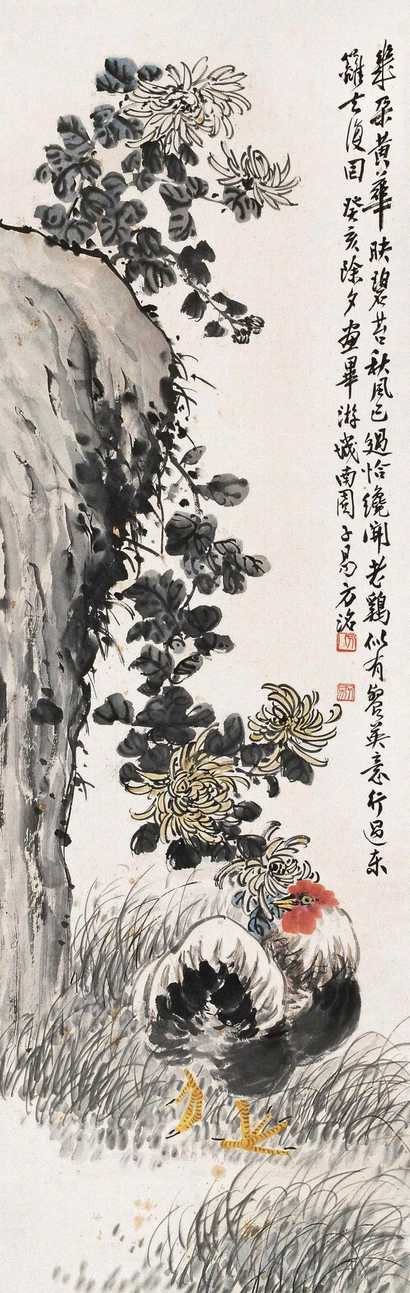 幾朵黃華映碧苔秋風已過恰纔開老鷄似有餐英意行過東
籬去復囘癸亥除夕畫畢游城南園子易方洺